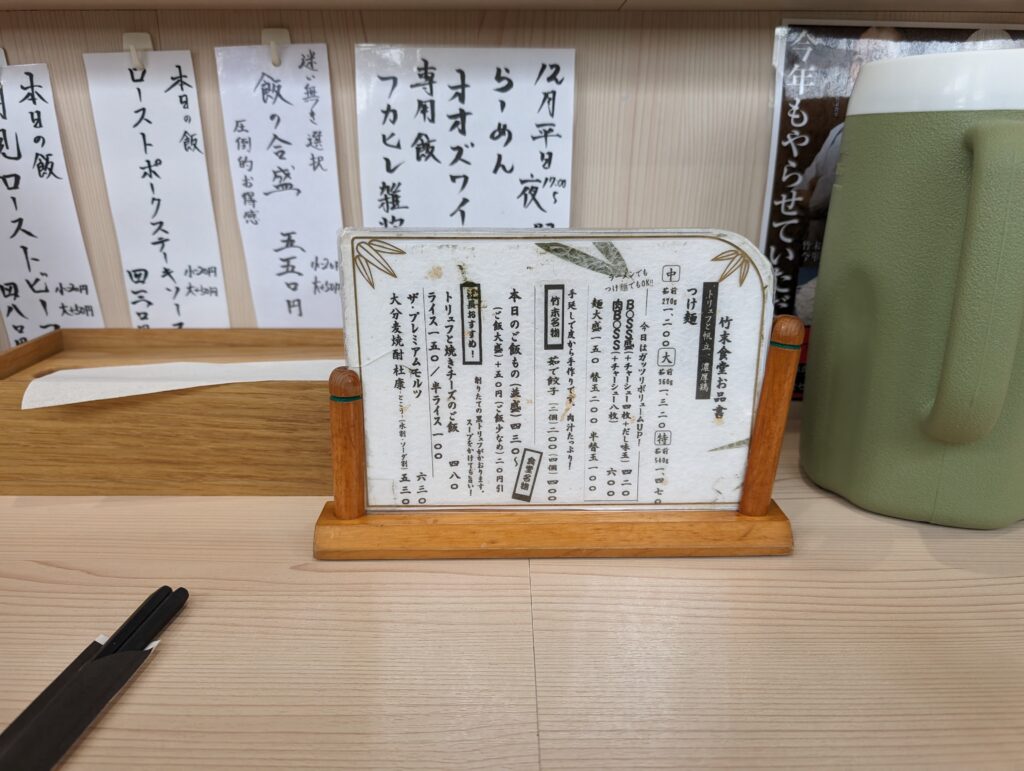 竹末食堂お品書
トリュフと帆立、濃厚鶏
つけ麺
中 茹前270g 一、二〇〇
大 茹前360g 一、三二〇
特 茹前540g 一、四七〇
ラーメンでも
つけ麺でもOK!!
今日はガッツリボリュームUP!
BOSS盛(+チャーシュー四枚+だし味玉) 四二〇
肉BOSS(+チャーシュー八枚) 六〇〇
麺大盛一五〇 替玉二〇〇 半替玉一〇〇
手延しで皮から手作りです。肉汁たっぷり!
竹末名物 茹で餃子(二個)二〇〇(四個)四〇〇
食堂名物
本日のご飯もの(並盛)四三〇〜
(ご飯大盛)+五〇円(ご飯少なめ)二〇円引
店長おすすめ!
削りたての黒トリュフがかおります。
スープをかけても旨い!
トリュフと焼きチーズのご飯 四八〇
ライス一五〇/半ライス一〇〇
ザ・プレミアムモルツ 六三〇
大分麦焼酎 杜康・とこう・(水割・ソーダ割) 五三〇
12月平日夜
17:00〜
らーめん
オオズワイ
専用飯
フカヒレ雑炊
迷い無き選択
飯の合盛 五五〇円
圧倒的お得感
小-20円
大+50円
本日の飯
ローストポークステーキソース
小-20円
大+50円
四三〇円
本日の飯
月見ローストビーフ
小-20円
大+50円
四八〇円
今年もやらせていただ
竹末